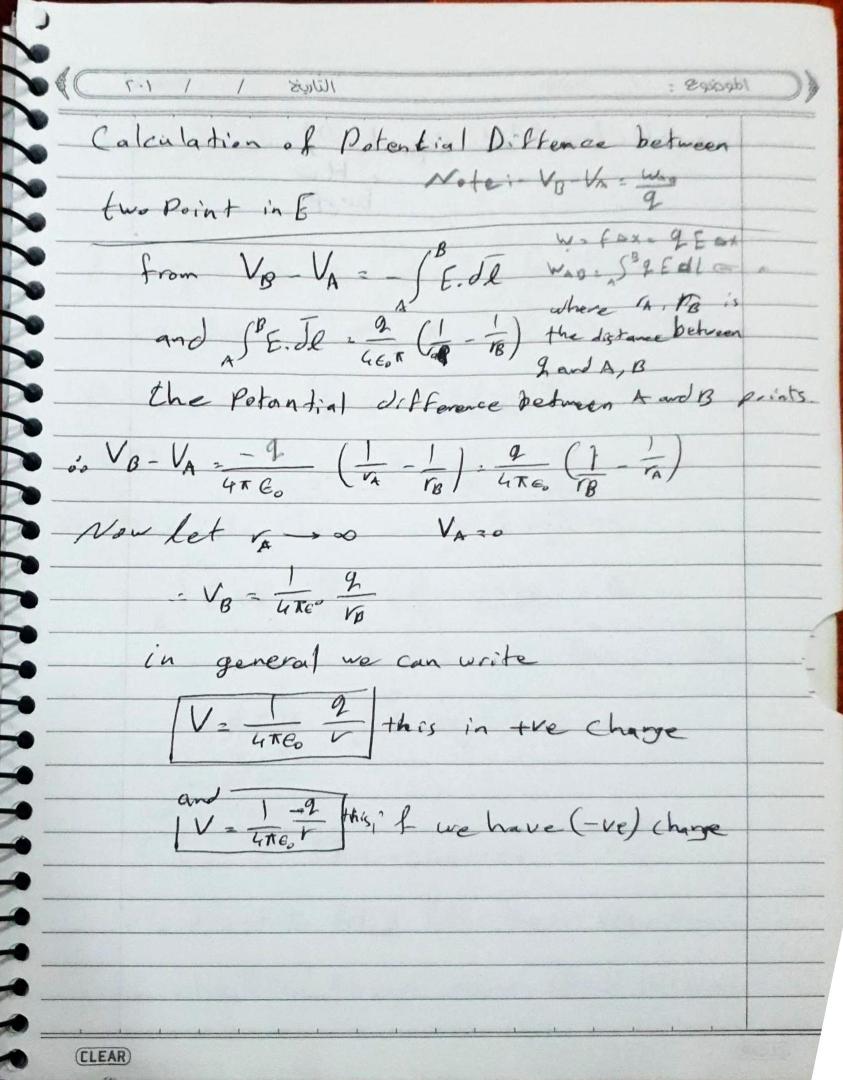 الموضوع : التاريخ / / ٢٠١
Calculation of Potential Diffence between
Note:- V_B - V_A = W_AB / q
two Point in E
W = F Δx = q E Δx
from V_B - V_A = - ∫_A^B E. dl
W_AB = _A∫^B q E dl =
where r_A, r_B is
and _A∫^B E. dl = q / 4ε₀π (1/r_A - 1/r_B)
the distance between
q and A, B
the Potantial difference between A and B points.
∴ V_B - V_A = -q / 4π ε₀ (1/r_A - 1/r_B) = q / 4π ε₀ (1/r_B - 1/r_A)
Now let r_A → ∞ V_A = 0
∴ V_B = 1 / 4πε₀ q / r_B
in general we can write
V = 1 / 4πε₀ q / r this in +ve Charge
and
V = 1 / 4πε₀ -q / r this, if we have (-ve) charge
CLEAR